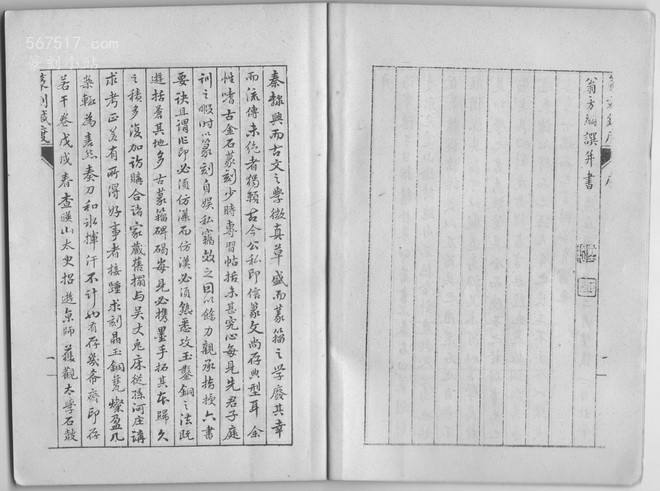 567517.com
篆刻小站
翁方綱譔并書
秦隸興而古文之學微真草盛而篆籀之學廢其幸
而流傳未絕者獨賴古今公私印信篆文尚存典型耳余
性嗜古金石篆刻少時專習帖括未甚究心每見先君子庭
訓之暇時以篆刻自娛私竊效之因以餘力觀承指授六書
要訣且謂作印必須仿漢而仿漢必須熟悉攻玉鑿銅之法既
遊括蒼其地多古篆籀碑碣每見必攜墨手拓其本歸久
之積多復加訪購合諸家藏舊搨與吳丈兎床從孫河庄講
求考正若有所得好事者接踵求刻晶玉銅甆燦盈几
案輒為喜然奏刀和冰揮汗不計也有存幾希齋印存
若干卷戊戌春查暎山太史招遊京師獲觀太學石鼓
篆刻鍼度
一